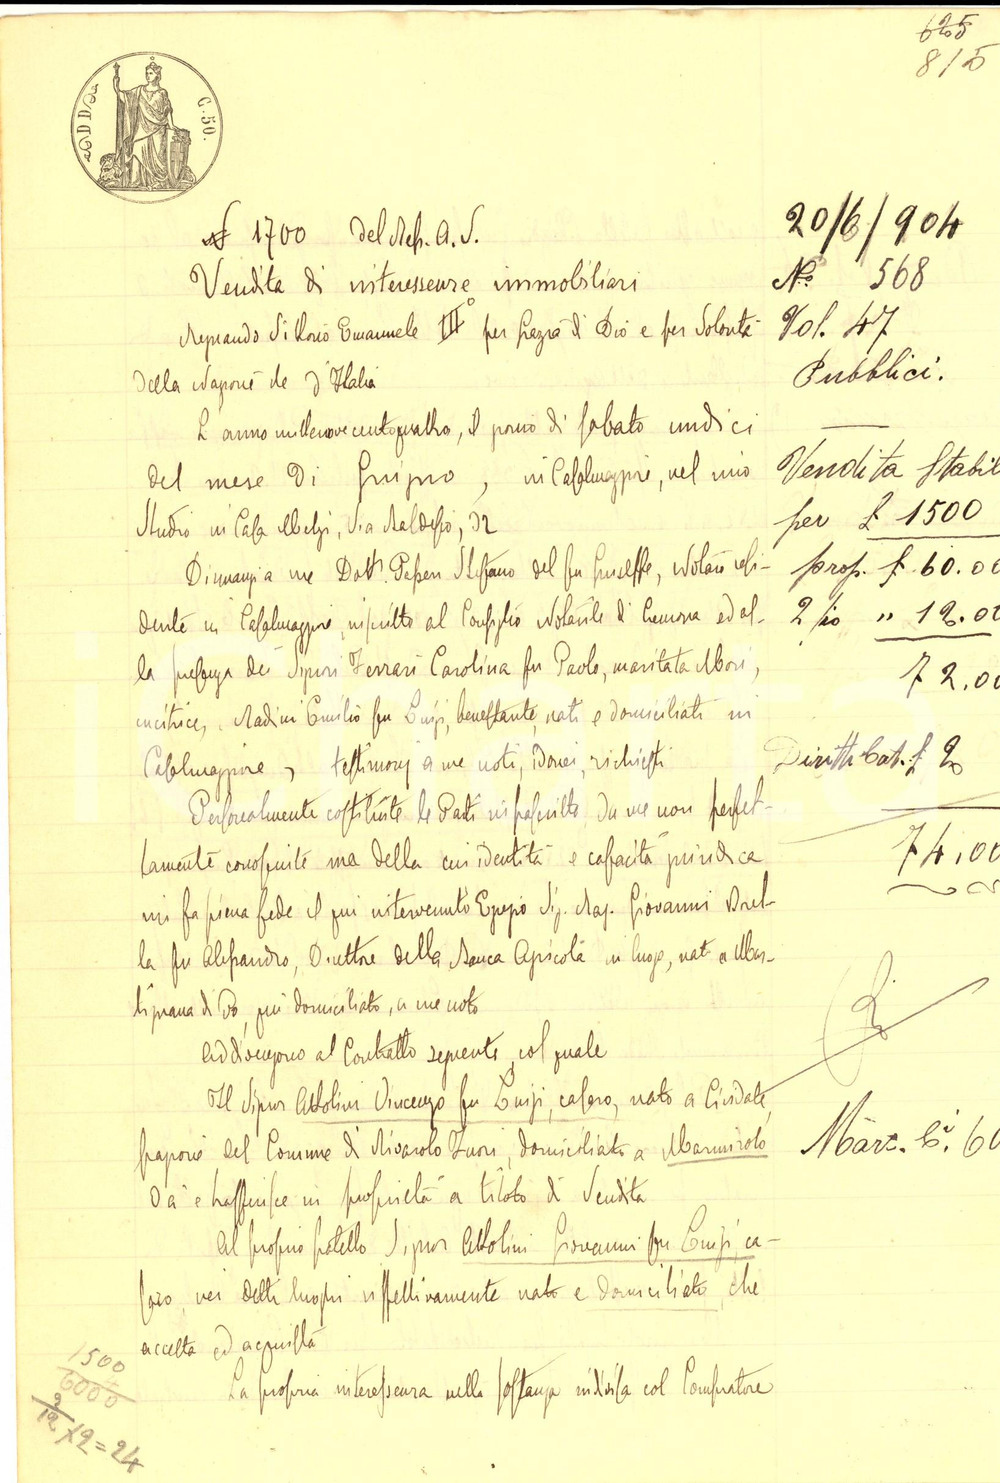 625
815
C. 50.
N 1700 del Rep. A. V.
Vendita di interessenze immobiliari
Regnando Vittorio Emanuele III° per grazia di Dio e per Volontà
della Nazione Re d'Italia
L'anno millenovecentoquattro, il giorno di Sabato undici
del mese di Giugno, in Casalmaggiore, nel mio
Studio in Casa Melzi, Via Baldesio, 32
Dinnanzi a me Dott. Stefano del fu Giuseppe, Notaio resi-
dente in Casalmaggiore, inscritto al Consiglio Notarile di Cremona ed al-
la presenza dei Signori Ferrari Carolina fu Paolo, maritata Mori,
cucitrice, Radini Emilio fu Luigi, benestante, nati e domiciliati in
Casalmaggiore, testimonj a me noti, idonei, richiesti
Personalmente costituite le Parti infrascritte, da me non perfet-
tamente conosciute ma della cui identità e capacità giuridica
mi fa piena fede il qui intervenuto Egregio Sig. Rag. Giovanni
la fu Alessandro, Direttore della Banca Agricola in luogo, nato a Mar-
tignana di Po, qui domiciliato, a me noto
Addivengono al Contratto seguente, col quale
Il Signor Attolini Vincenzo fu Luigi, casaro, nato a Cividale,
frazione del Comune di Rivarolo Fuori, domiciliato a Marmirolo
Dà e trasferisce in proprietà a titolo di Vendita
Al proprio fratello Signor Attolini Giovanni fu Luigi, ca-
saro, nei detti luoghi rispettivamente nato e domiciliato, che
accetta ed acquista
La propria interessenza nella sostanza indivisa col Compratore
20/6/904
No. 568
Vol. 47
Pubblici.
Vendita Stabil
per £ 1500
prop. £ 60.00
2/10 " 12.00
72.00
Diritti Cat. £ 2
74.00
60
1500
6000
12 = 24